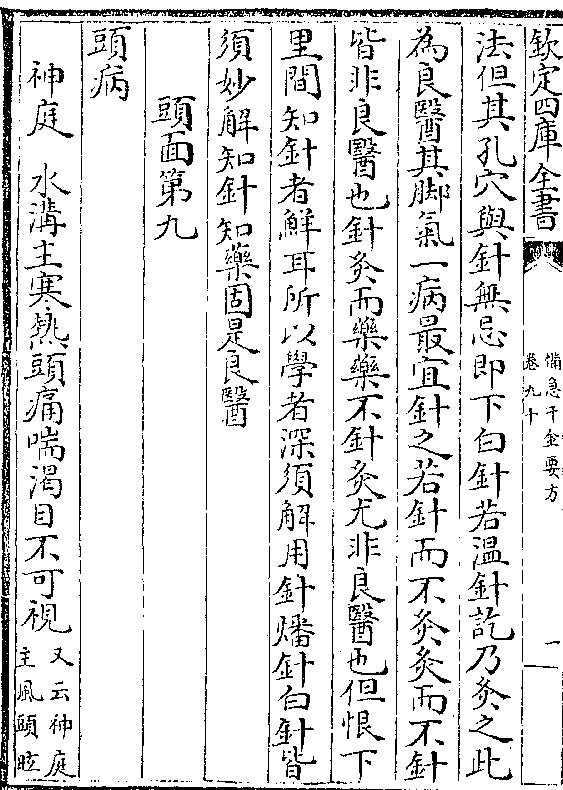 欽定四庫全書
備急千金要方
卷九十
一
法但其孔穴與針無忌即下白針若溫針訖乃灸之此
為良醫其脚氣一病最宜針之若針而不灸灸而不針
皆非良醫也針灸而藥藥不針灸尤非良醫也但恨下
里間知針者鮮耳所以學者深須解用針燔針白針皆
須妙解知針知藥固是良醫
頭面第九
頭病
神庭 水溝主寒熱頭痛喘渴目不可視
又云神庭
主風頭眩